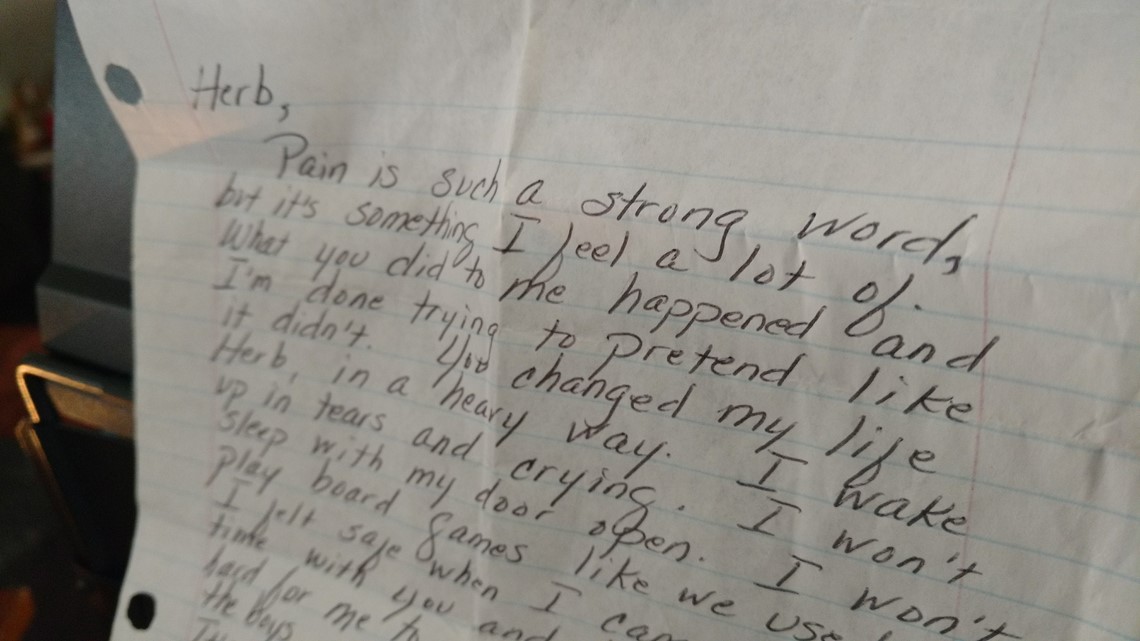 Herb,
Pain is such a strong word,
but it's something I feel a lot of.
What you did to me happened and
I'm done trying to pretend like
it didn't. You changed my life
Herb, in a heavy way. I wake
up in tears and crying. I won't
sleep with my door open. I won't
play board games like we use
I felt safe when I
time with you and
hard for me to
the boys